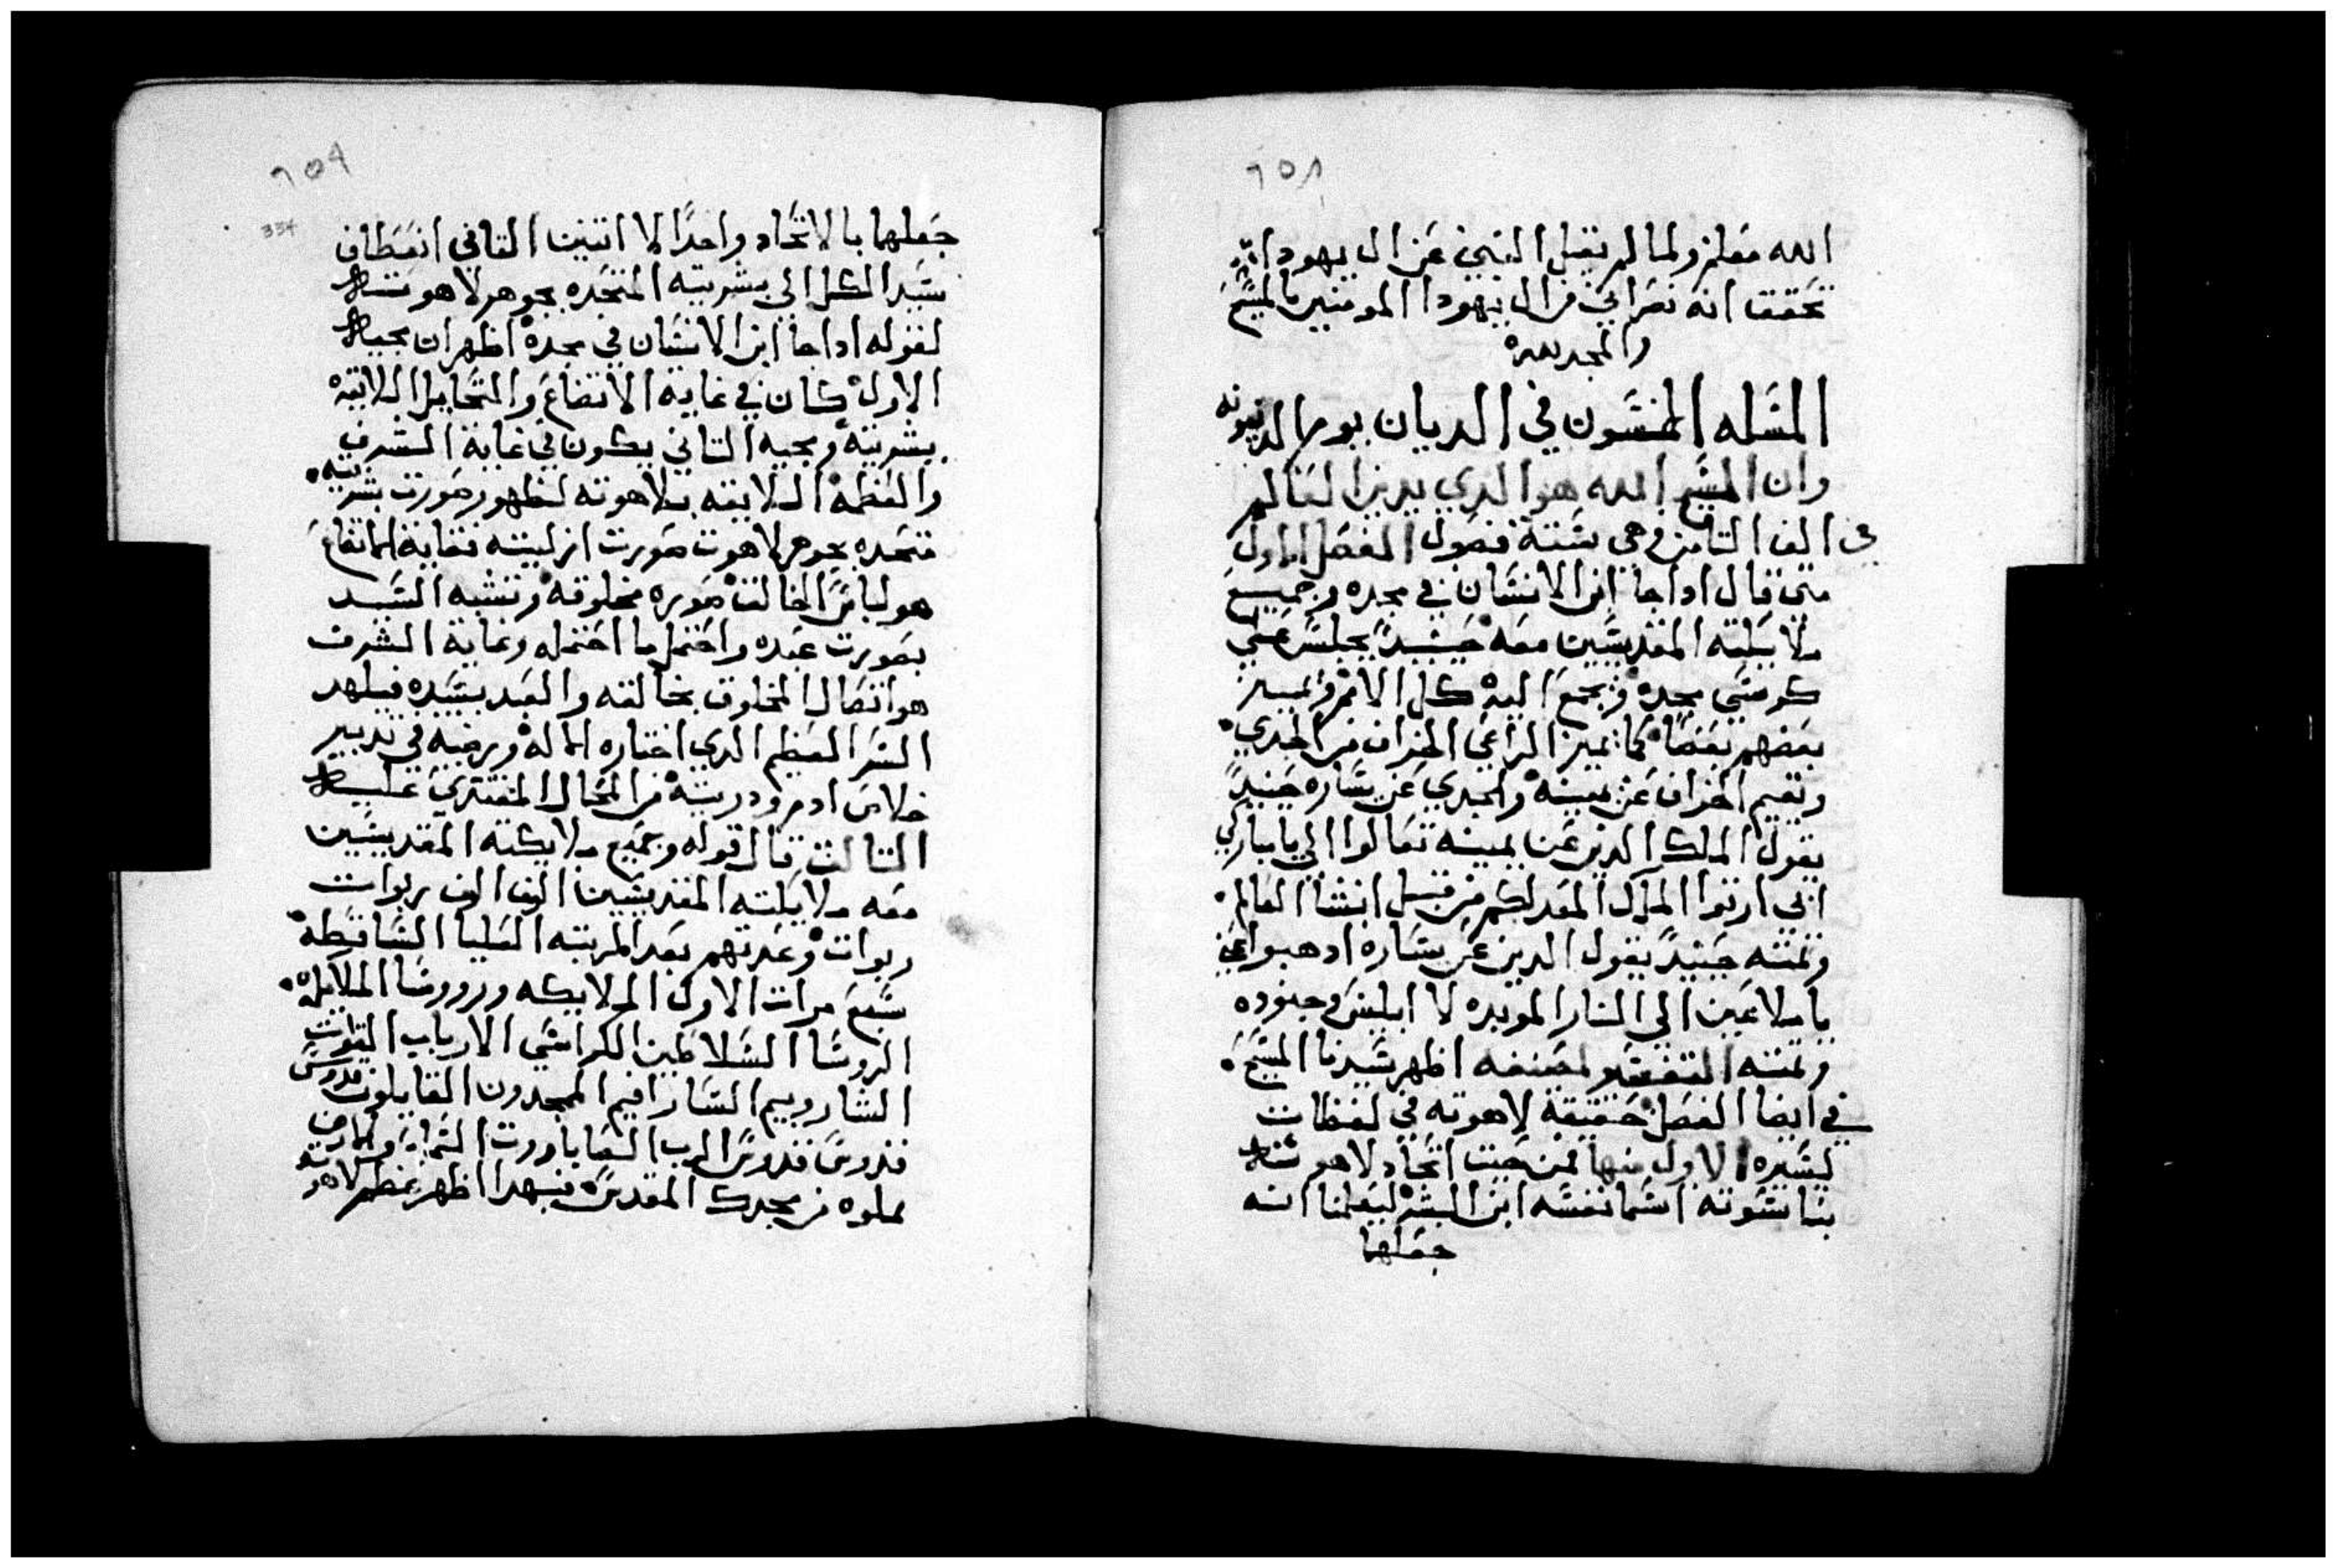 ٦٥٨
الله معلن ولما لم يقل النبي عن ال يهودا
تحقق انه نصراني من ال يهودا المومنين بالمسيح
والمجد لله
المسله الخمسون في الديان يوم الدينونه
وان المسيح الله هو الدي يدين العالم
في الف التامن وهي ستة فصول الفصل الاول
متي قال اداجا ابن الانسان في مجده وجميع
ملايكته المقديسين معه حينيدً يجلس علي
كرسي مجده وتجمع اليه كل الامم ويميز
بعضهم بعضًا كما يميز الراعي الخراف من الجدي
ويقيم الخراف عن يمينه والجدي عن يساره حينيدً
يقول الملك الدين عن يمينه تعالوا الي يا مباركي
ابي ارتوا الملك المعد لكم من قبل انشا العالم
وتمته حينيدً يقول الدين عن يساره ادهبوا عني
يا ملاعين الي النار الموبده لا ابليس وجنوده
وتمته التفسير لمصنفه اظهر سيدنا المسيح
في ايضا الفصل حقيقة لاهوته في لفظات
يسيره الاول منها فمن حيت اتحاد لاهوته
بناسوته اسما نفسه ابن البشر ليعلمنا انه
جعلهما
٦٥٩
334
جعلهما بالاتحاد واحدًا لا اتنين التاني انعطاف
سيد الكل الي بشريته المتحده بجوهر لاهوته
لقوله اداجا ابن الانسان في مجده اظهر ان مجيه
الاول كان في غاية الاتضاع والتحايل اللايقه
بشريته ومجيه التاني يكون في غاية الشرف
والعظمه اللايقه بلاهوته لظهور صورت بشريته
متحده بجوهر لاهوت صورت ازليته فغاية الاتضاع
هو لباس الخالق صوره مخلوقه وتشبه السيد
بصورت عبده واحتمل ما احتمله وغاية الشرف
هو اتصال المخلوق بخالقه والعبد بسيده فيلهد
السر العظيم الدي اختاره الاله ورضيه في تدبير
خلاص ادم ودريته من المحال المفتري عليه
التالت قال قوله وجميع ملايكته المقديسين
معه ملايكته المقديسين الوف الوف ربوات
ربوات وعدتهم بعد المرتبه العليا الساقطه
سبع مرات الاول الملايكه وروسا الملايكه
الروسا السلاطين الكراسي الارباب القوات
الشاروبيم السارافيم الممجدون القايلون قدوس
قدوس قدوس الرب الصاباووت السما والارض
مملوه من مجدك المقدس فبهدا اظهر عظم لاهوته